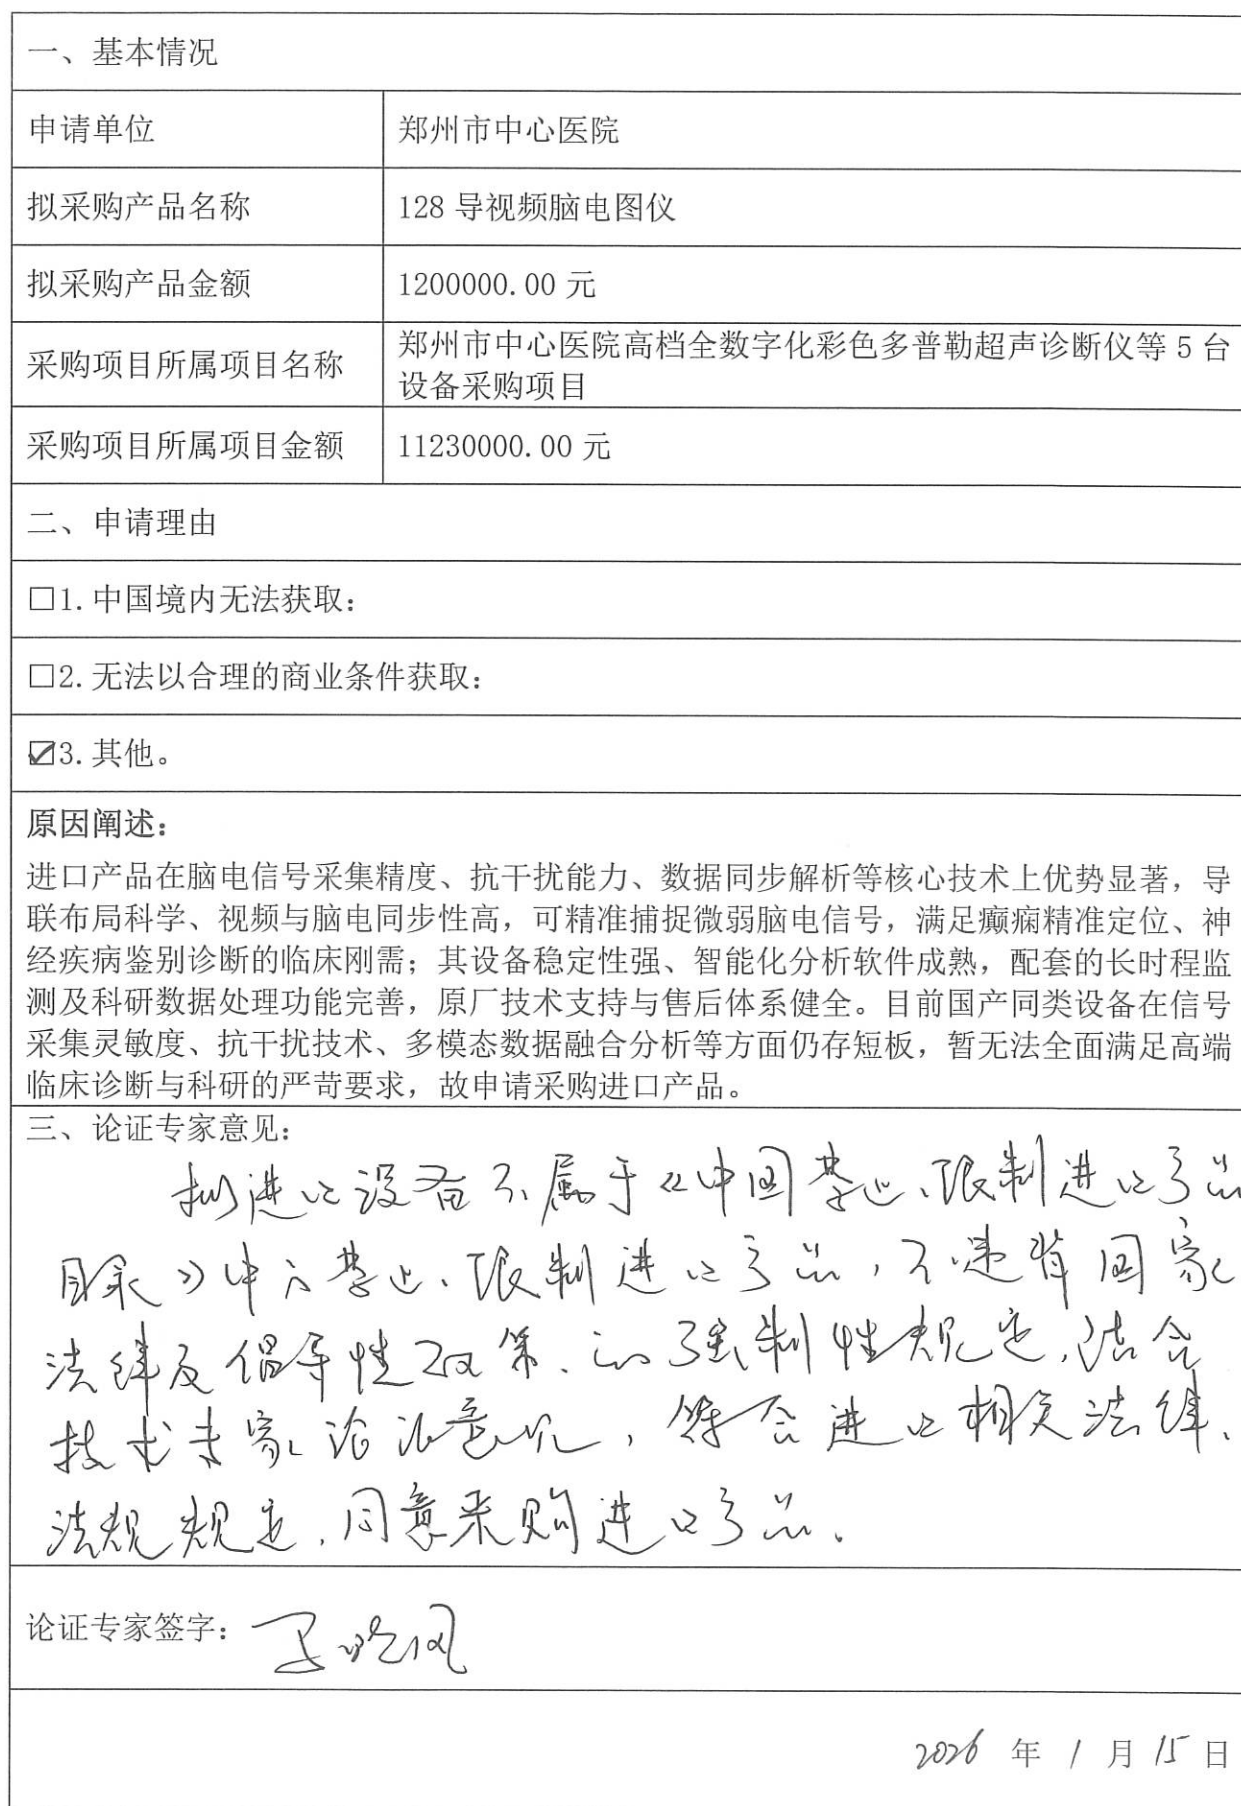 一、基本情况
申请单位 郑州市中心医院
拟采购产品名称 128 导视频脑电图仪
拟采购产品金额 1200000.00 元
采购项目所属项目名称 郑州市中心医院高档全数字化彩色多普勒超声诊断仪等 5 台
设备采购项目
采购项目所属项目金额 11230000.00 元
二、申请理由
□1.中国境内无法获取：
□2.无法以合理的商业条件获取：
☑3.其他。
原因阐述：
进口产品在脑电信号采集精度、抗干扰能力、数据同步解析等核心技术上优势显著，导
联布局科学、视频与脑电同步性高，可精准捕捉微弱脑电信号，满足癫痫精准定位、神
经疾病鉴别诊断的临床刚需；其设备稳定性强、智能化分析软件成熟，配套的长时程监
测及科研数据处理功能完善，原厂技术支持与售后体系健全。目前国产同类设备在信号
采集灵敏度、抗干扰技术、多模态数据融合分析等方面仍存短板，暂无法全面满足高端
临床诊断与科研的严苛要求，故申请采购进口产品。
三、论证专家意见：
拟进口设备不属于《中国禁止、限制进口产品
目录》中之禁止、限制进口产品，不违背国家
法律及倡导性政策、的强制性规定，结合
技术专家论证意见，符合进口相关法律、
法规规定，同意采购进口产品。
论证专家签字：
2026 年 1 月 15 日